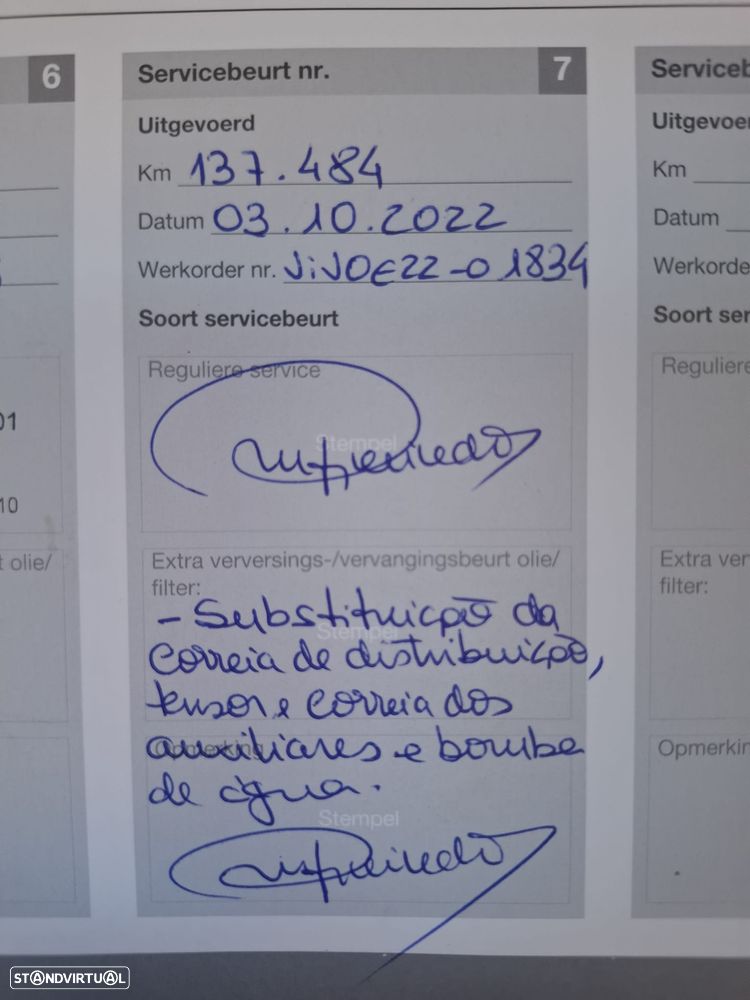 6
Servicebeurt nr. 7
Uitgevoerd
Km 137.484
Datum 03.10.2022
Werkorder nr.
Soort servicebeurt
Reguliere service
Stempel
Extra verversings-/vervangingsbeurt olie/
filter:
- Substituição da
Stempel
correia de distribuição,
tensor e correia dos
auxiliares e bomba
Opmerking
de água.
Stempel
01
10
t olie/
Serviceb
Uitgevoer
Km
Datum
Werkorde
Soort ser
Reguliere
Extra ver
filter:
Opmerkin
STANDVIRTUAL